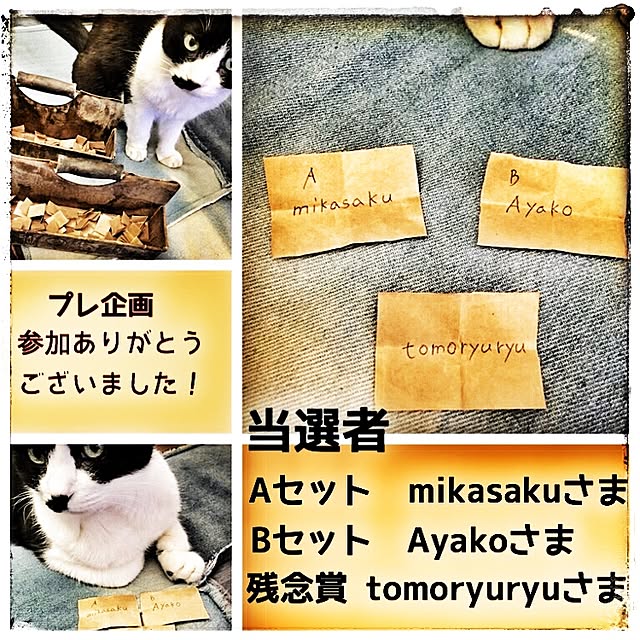 A
mikasaku
B
Ayako
tomoryuryu
プレ企画
参加ありがとう
ございました！
当選者
Aセット　mikasakuさま
Bセット　Ayakoさま
残念賞 tomoryuryuさま
A
mikasaku
B
Ayako